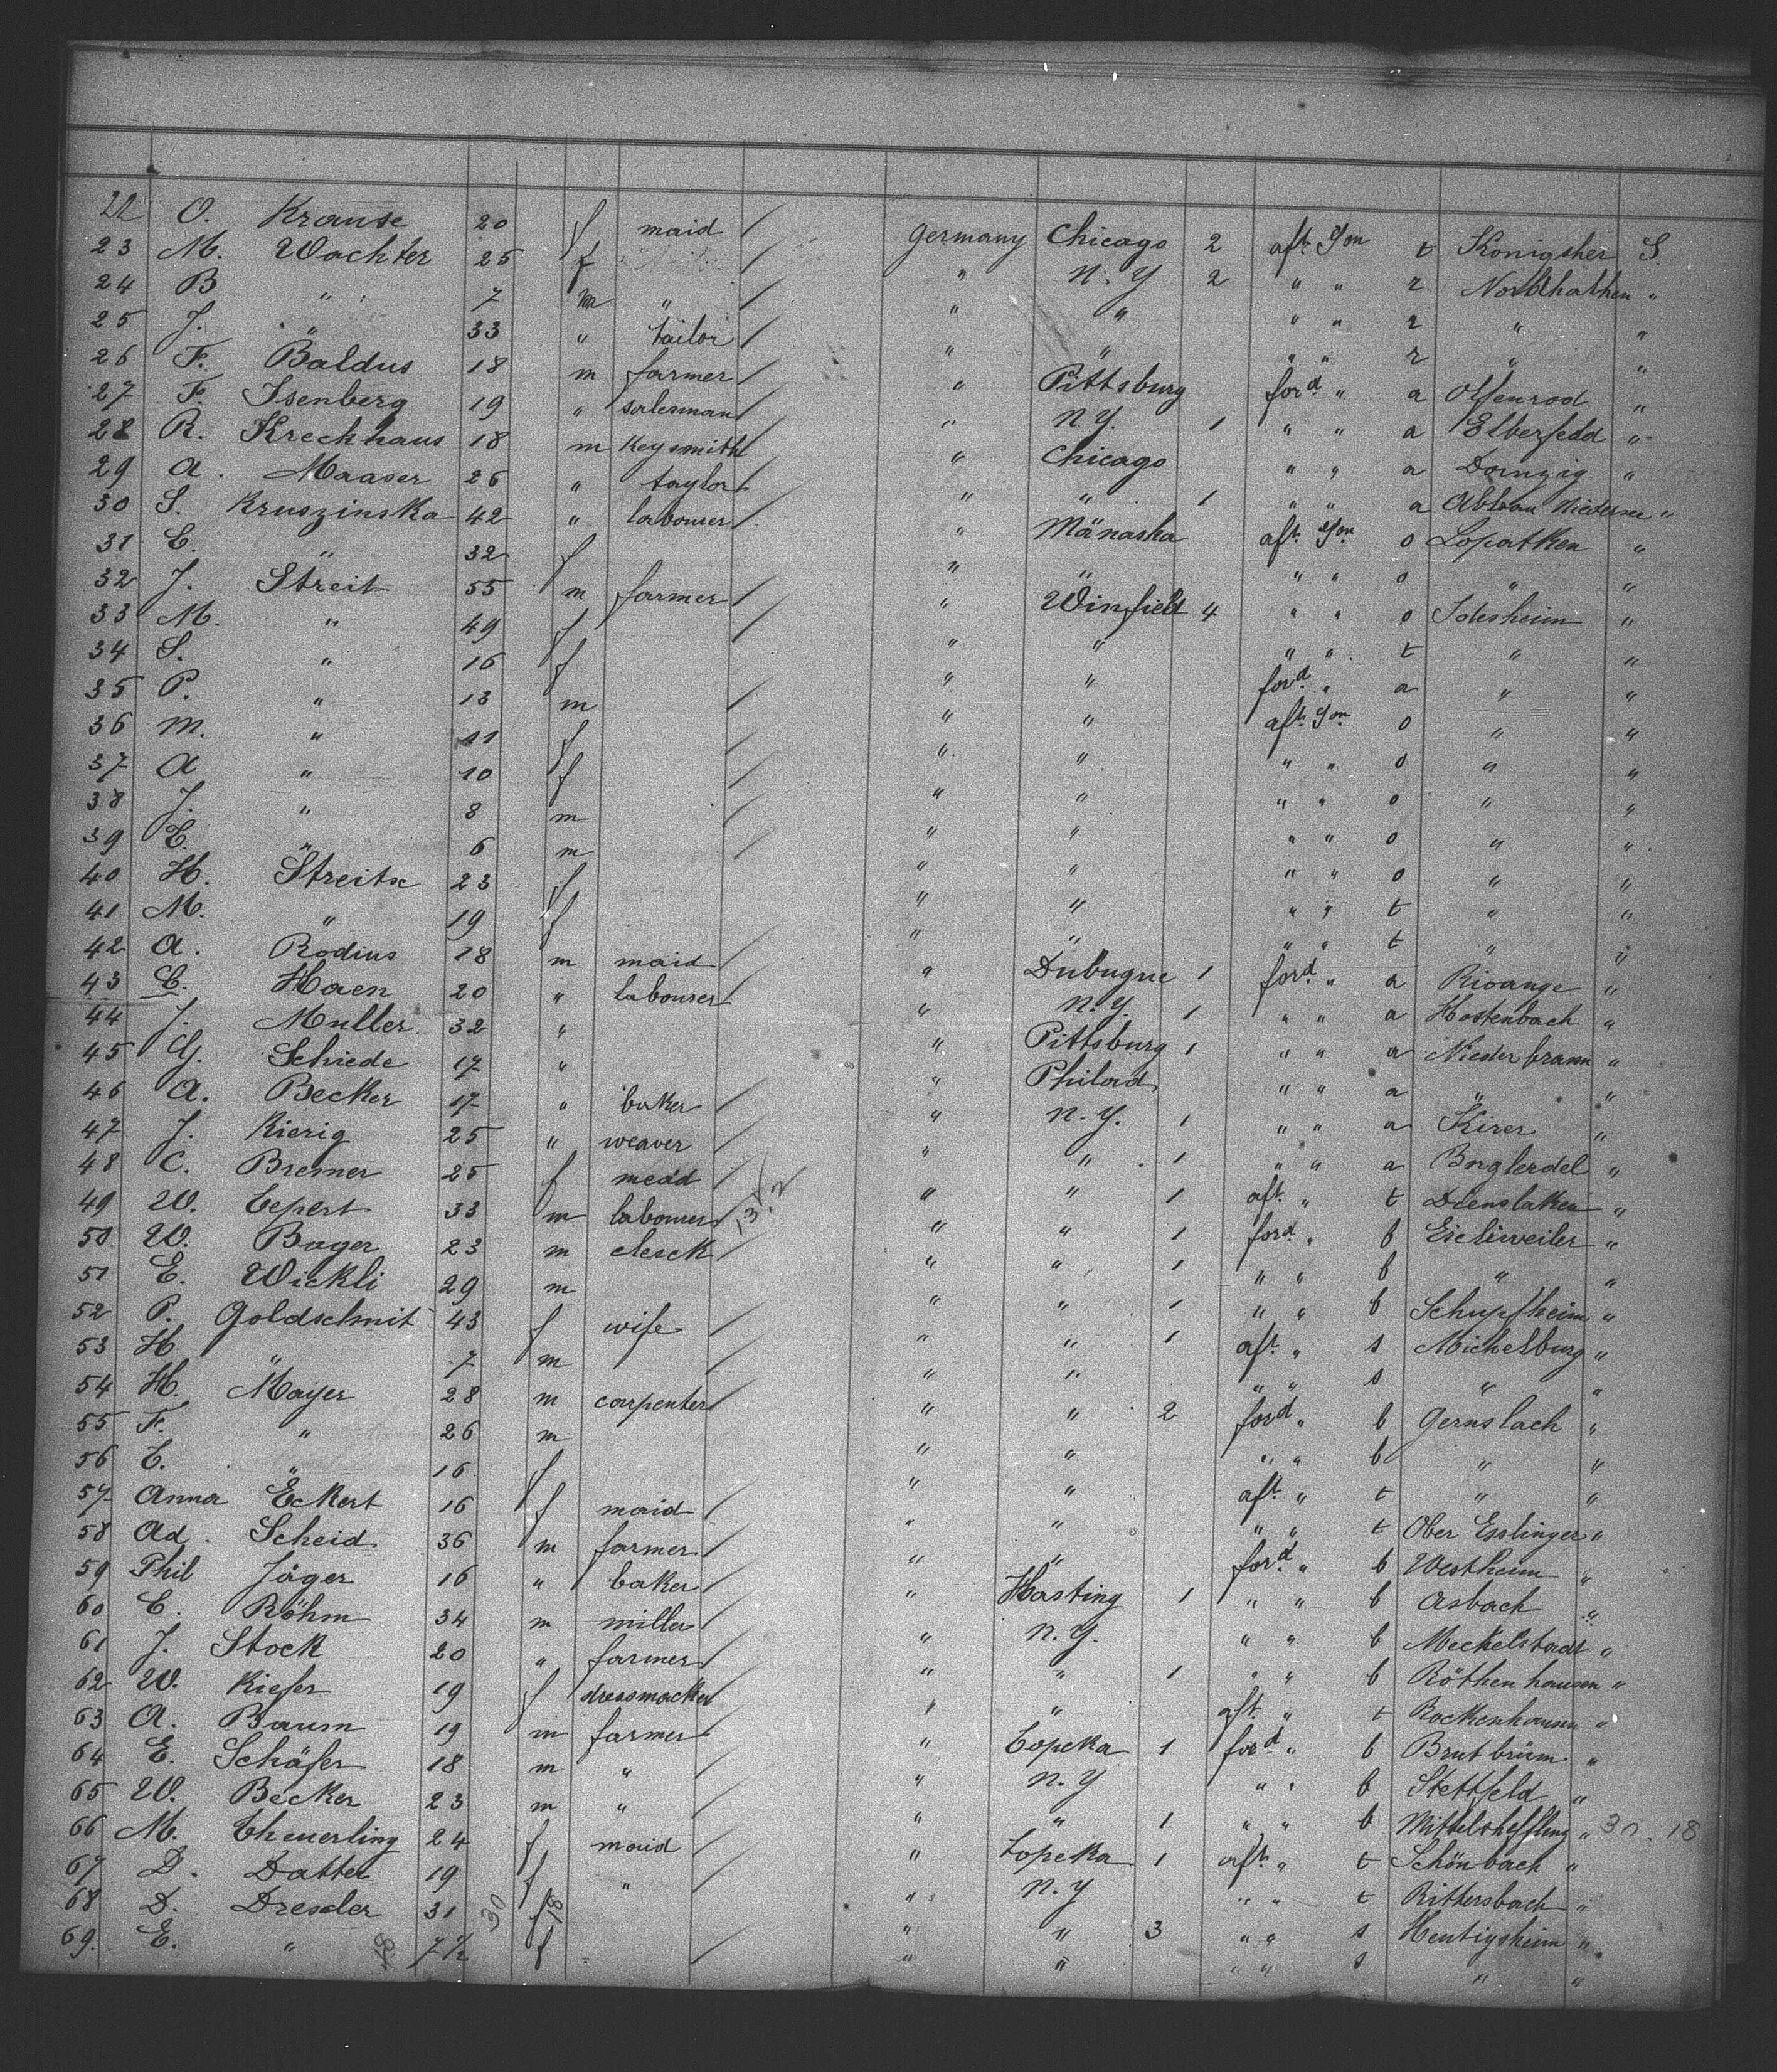 22 O. Krause 20 f maid / Germany Chicago 2 aft. Ymn t Konigsher S.
23 M. Wachter 25 f / " N.Y 2 " " r Nordhathen "
24 B " 7 m " / " " " " r " "
25 J. " 33 " tailor / " " " " r " "
26 F. Baldus 18 m farmer / " Pittsburg ford " a Offenrod "
27 F. Isenberg 19 " salesman / " N.Y. 1 " " a Elberfeld "
28 R. Krechhaus 18 m Keysmith " Chicago " " a Danzig "
29 A. Maaser 26 " taylor / " " 1 " " a Abbau Niedersee "
30 S. Kruszinska 42 " labourer / " Mänasha aft. Ymn. o Lopatken "
31 E. " 32 f " " " " o " "
32 J. Streit 55 m farmer / " Winfield 4 " " o Idesheim "
33 M. " 49 f / " " " " t " "
34 S. " 16 f " " ford " a " "
35 P. " 13 m / " " aft. Ymn. o " "
36 M. " 11 f / " " " " o " "
37 A " 10 f / " " " " o " "
38 J. " 8 m / " " " " o " "
39 E. " 6 m / " " " " o " "
40 H. Streitz 23 f " " " " t " "
41 M. " 19 f " " " " t " "
42 A. Rodius 18 m maid / " Dubuque 1 ford " a Rioange "
43 C. Haen 20 " labourer / " N.Y. 1 " " a Hostenbach "
44 J. Muller 32 " " Pittsburg 1 " " a Niederbrann "
45 G. Schiede 17 " " Philad " " a " "
46 A. Becker 17 " baker / " N.Y. 1 " " a Kirer "
47 J. Rierig 25 " weaver / " " 1 " " a "
48 C. Bremer 25 f medd / " " 1 aft. " t Dienslaken "
49 W. Eepert 33 m labourer / " " 1 ford " b Eschweiler "
50 W. Bager 23 m clesck / " " 1 " " b " "
51 E. Wickli 29 m " " 1 " " b Schupfheim "
52 P. Goldschmit 43 f wife / " " 1 aft. " s Michelsburg "
53 H " 7 m / " " " " s " "
54 H. Mayer 28 m carpenter / " " 2 ford " b Gernslach "
55 F. " 26 m / " " " " b " "
56 E. " 16 f / " " aft. " t " "
57 Anna Eckert 16 f maid / " " " " t Ober Esslinger "
58 Ad. Scheid 36 m farmer / " " ford " b Westheim "
59 Phil Jäger 16 " baker / " Hasting 1 " " b Asbach "
60 E. Röhm 34 m miller / " N.Y. " " b Meckelstadt "
61 J. Stock 20 " farmer / " " 1 " " b Röthenhausen "
62 W. Kiefer 19 f dressmacker " " aft. " t Rockenhausen "
63 A. Baum 19 m farmer / " Topeka 1 ford " b Brutbrüm "
64 E. Schäfer 18 m " / " N.Y " " b Stettfeld "
65 W. Becker 23 m " / " " 1 " " b "
66 M. Theuerling 24 f maid / " Topeka 1 aft. " t Schönbach "
67 D. Datter 19 f " / " N.Y " " t Rittersbach "
68 D. Dressler 31 f " " 3 " " s Hentigsheim "
69. E. " 7½ f / " " " " s " "
30 18
30 18
18